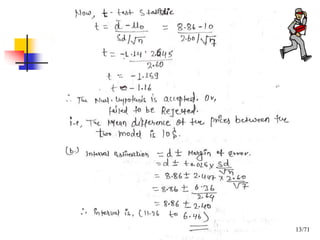 Now, t-test statistic
t = d̄ - μ₀ / Sd/√n = 8.86-10 / 2.60/√7
t = -1.14 * 2.645 / 2.60
t = -1.159
t = -1.16
∴ The Null hypothesis is accepted. Or,
failed to be Rejected.
i.e, The Mean difference of the prices between the
two model is 10$.
(b.) Interval Estimation = d̄ ± Margin of error.
= d̄ ± t0.025 × Sd/√n
= 8.86 ± 2.447 × 2.60/√7
= 8.86 ± 6.36/2.64
= 8.86 ± 2.40
∴ Interval is, (11.26 to 6.46)
13/71